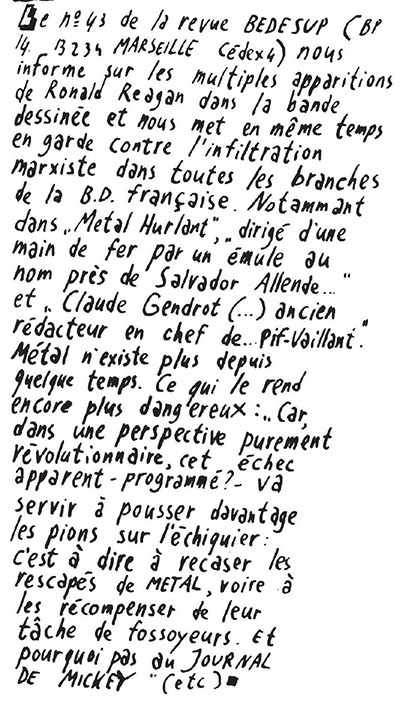 Le nº 43 de la revue BEDESUP (BP
14 13234 MARSEILLE Cédex4) nous
informe sur les multiples apparitions
de Ronald Reagan dans la bande
dessinée et nous met en même temps
en garde contre l'infiltration
marxiste dans toutes les branches
de la B.D. française. Notammant
dans „Metal Hurlant", „dirigé d'une
main de fer par un émule au
nom près de Salvador Allende..."
et „Claude Gendrot (...) ancien
rédacteur en chef de... Pif-Vaillant".
Métal n'existe plus depuis
quelque temps. Ce qui le rend
encore plus dangereux : „Car,
dans une perspective purement
révolutionnaire, cet échec
apparent - programmé? - va
servir à pousser davantage
les pions sur l'échiquier :
c'est à dire à recaser les
rescapés de METAL, voire à
les récompenser de leur
tâche de fossoyeurs. Et
pourquoi pas au JOURNAL
DE MICKEY "(etc)■